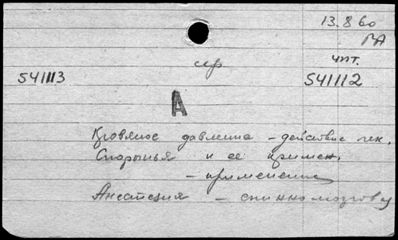 13.8.60
ВА
чит.
541113
541112
А
Кровяное давление – действие лек.
Спорынья и ее примен.
– применение
Анестезия – спинномозгов.